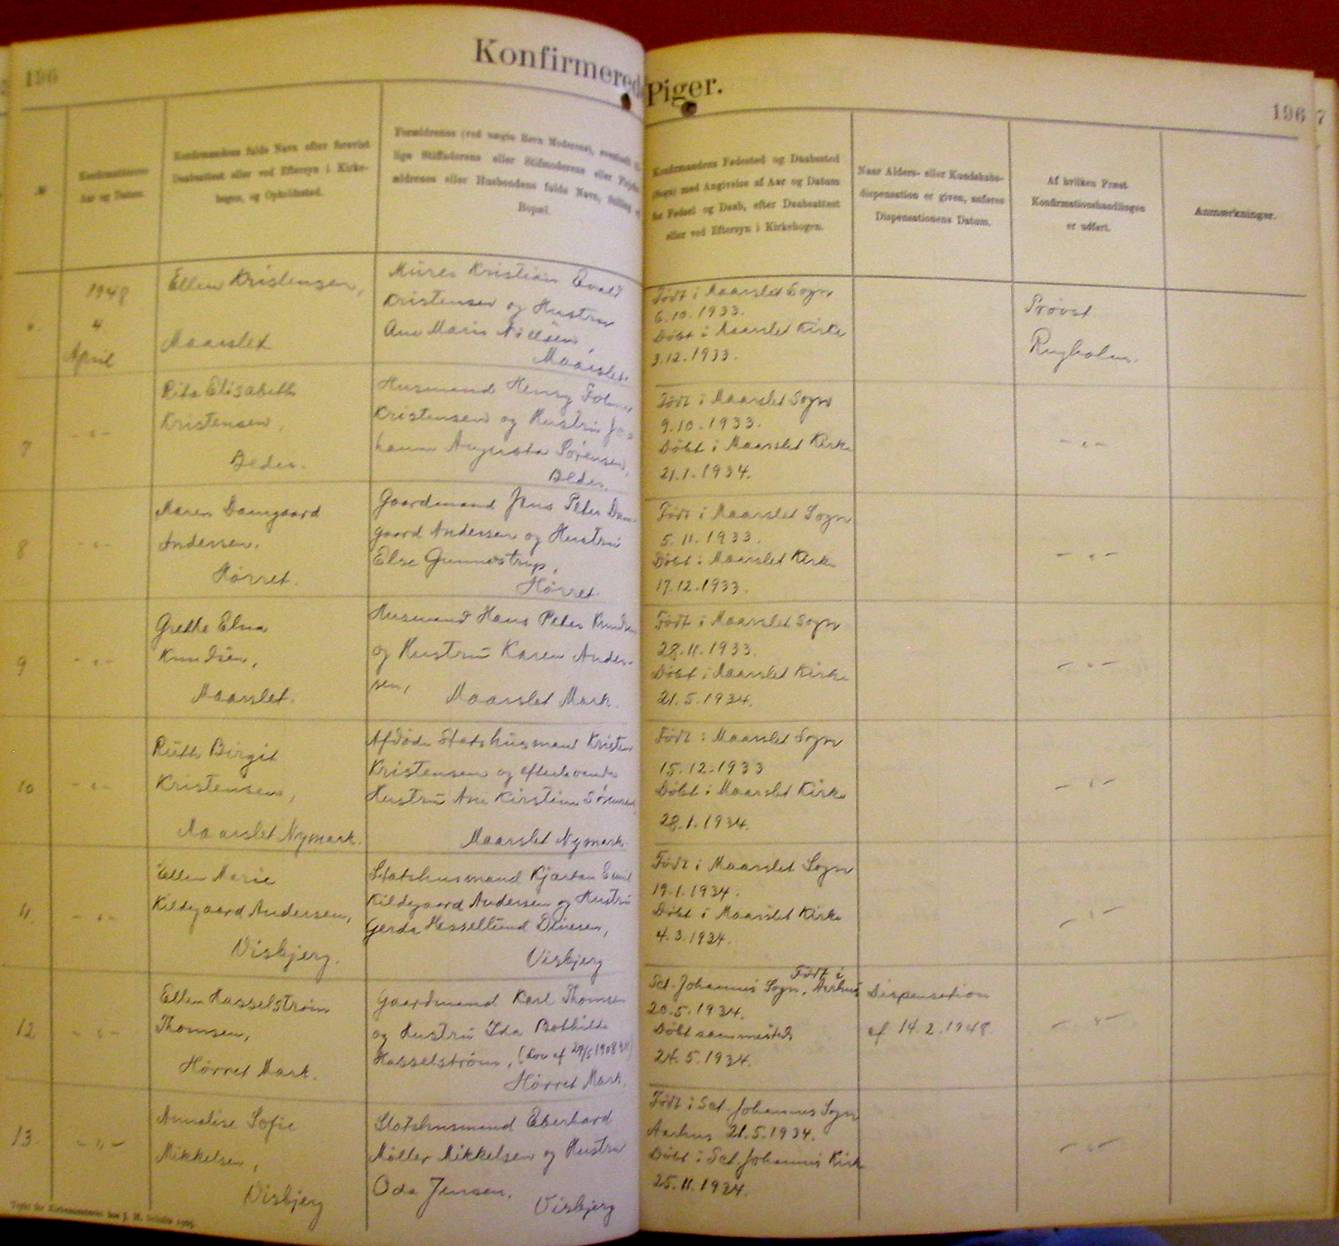 196
Konfirmerede Piger.
196
7
№
Konfirmationens
Aar og Datum.
Konfirmandens fulde Navn efter forevist
Daabsattest eller ved Eftersyn i Kirke-
bogen, og Opholdssted.
Forældrenes (ved uægte Børn Moderens), eventuelt
lige Stiffaderens eller Stifmoderens eller Pleje-
ældrenes eller Husbondens fulde Navn, Stilling og
Bopæl.
Konfirmandens Fødested og Daabssted
(Sogn) med Angivelse af Aar og Datum
for Fødsel og Daab, efter Daabsattest
eller ved Eftersyn i Kirkebogen.
Naar Alders- eller Kundskabs-
dispensation er given, anføres
Dispensationens Datum.
Af hvilken Præst
Konfirmationshandlingen
er udført.
Anmærkninger.
1948
4
April
Ellen Kristensen,
Maarslet
Murer Kristian Evald
Kristensen og Hustru
Ane Marie Nielsen,
Maarslet.
Født i Maarslet Sogn
6.10.1933.
Døbt i Maarslet Kirke
3.12.1933.
Provst
Rugholm.
7
- " -
Rita Elisabeth
Kristensen,
Beder.
Husmand Henry Folmer
Kristensen og Hustru Jo-
hanne Augusta Sørensen,
Beder.
Født i Maarslet Sogn
9.10.1933.
Døbt i Maarslet Kirke
21.1.1934.
- " -
8
- " -
Maren Damgaard
Andersen.
Hørret.
Gaardmand Jens Peter Dam-
gaard Andersen og Hustru
Else Gunnestrup,
Hørret
Født i Maarslet Sogn
5.11.1933.
Døbt i Maarslet Kirke
17.12.1933.
- " -
9
- " -
Grethe Elna
Knudsen,
Maarslet.
Husmand Hans Peter Knudsen
og Hustru Karen Ander-
sen,
Maarslet Mark.
Født i Maarslet Sogn
28.11.1933.
Døbt i Maarslet Kirke
21.5.1934.
- " -
10
- " -
Ruth Birgit
Kristensen,
Maarslet Nymark.
Afdøde Statshusmand Kristen
Kristensen og efterlevende
Hustru Ane Kirstine Sørensen,
Maarslet Nymark.
Født i Maarslet Sogn
15.12.1933
Døbt i Maarslet Kirke
28.1.1934.
- " -
11.
- " -
Ellen Marie
Kildegaard Andersen,
Visbjerg.
Statshusmand Kjartan Emil
Kildegaard Andersen og Hustru
Gerda Hessellund
Visbjerg
Født i Maarslet Sogn
19.1.1934.
Døbt i Maarslet Kirke
4.3.1934.
- " -
12
- " -
Ellen Hasselstrøm
Thomsen,
Hørret Mark.
Gaardmand Karl Thomsen
og Hustru Ida Bothilde
Hasselstrøm, (Lov af 1908
Hørret Mark.
Født i
Sct. Johannes Sogn, Aarhus
20.5.1934.
Døbt sammesteds
24.5.1934.
Dispensation
af 14.2.1948.
- " -
13.
- " -
Annalise Sofie
Mikkelsen,
Visbjerg
Statshusmand Eberhard
Møller Mikkelsen og Hustru
Oda Jensen.
Visbjerg
Født i Sct. Johannes Sogn
Aarhus 21.5.1934.
Døbt i Sct. Johannes Kirke
25.11.1934.
- " -